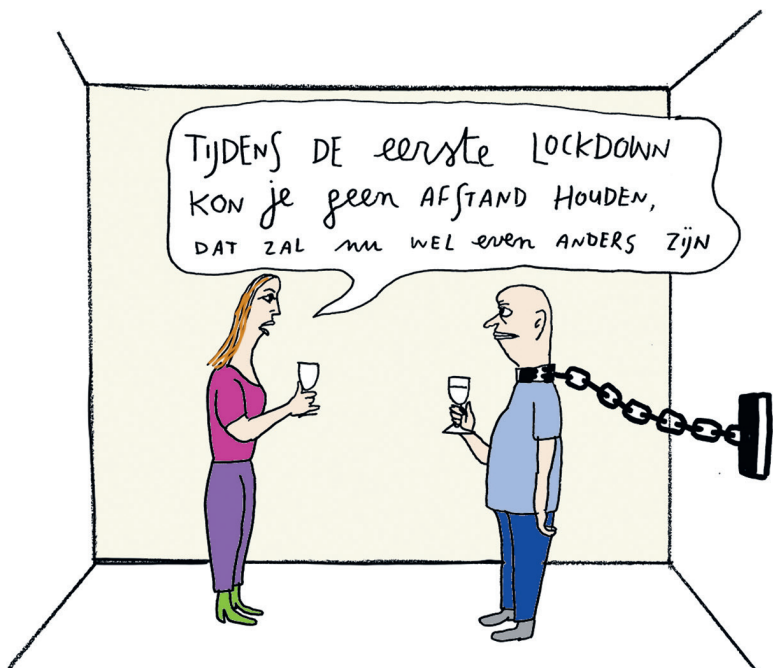 TIJDENS DE eerste LOCKDOWN
KON je geen AFSTAND HOUDEN,
DAT ZAL nu WEL even ANDERS ZIJN